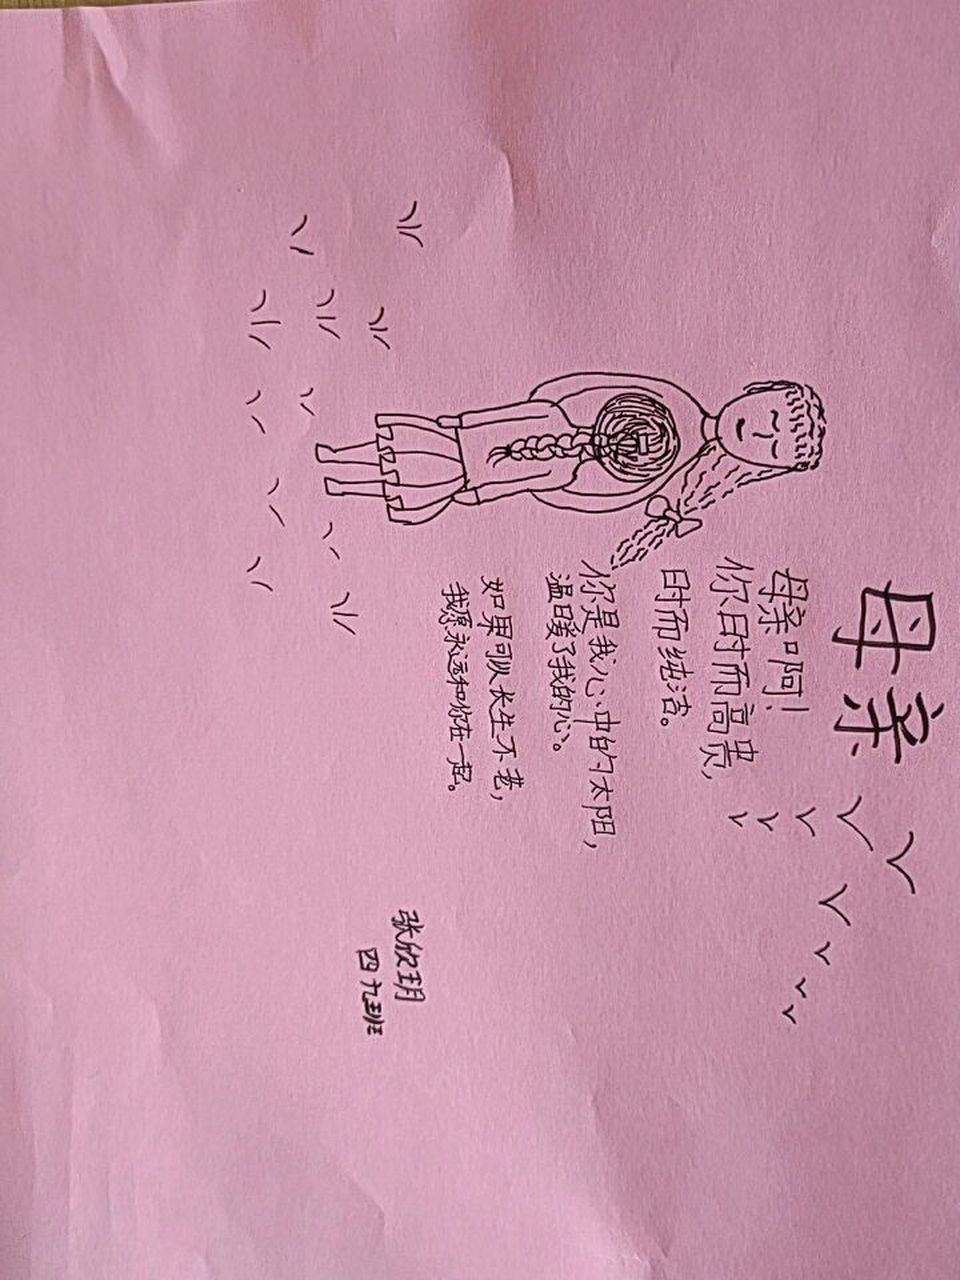 母亲
母亲啊!
你时而高贵,
时而纯洁。
你是我心中的太阳,
温暖了我的心。
如果可以长生不老,
我愿永远和你在一起。
张欣玥
四九班